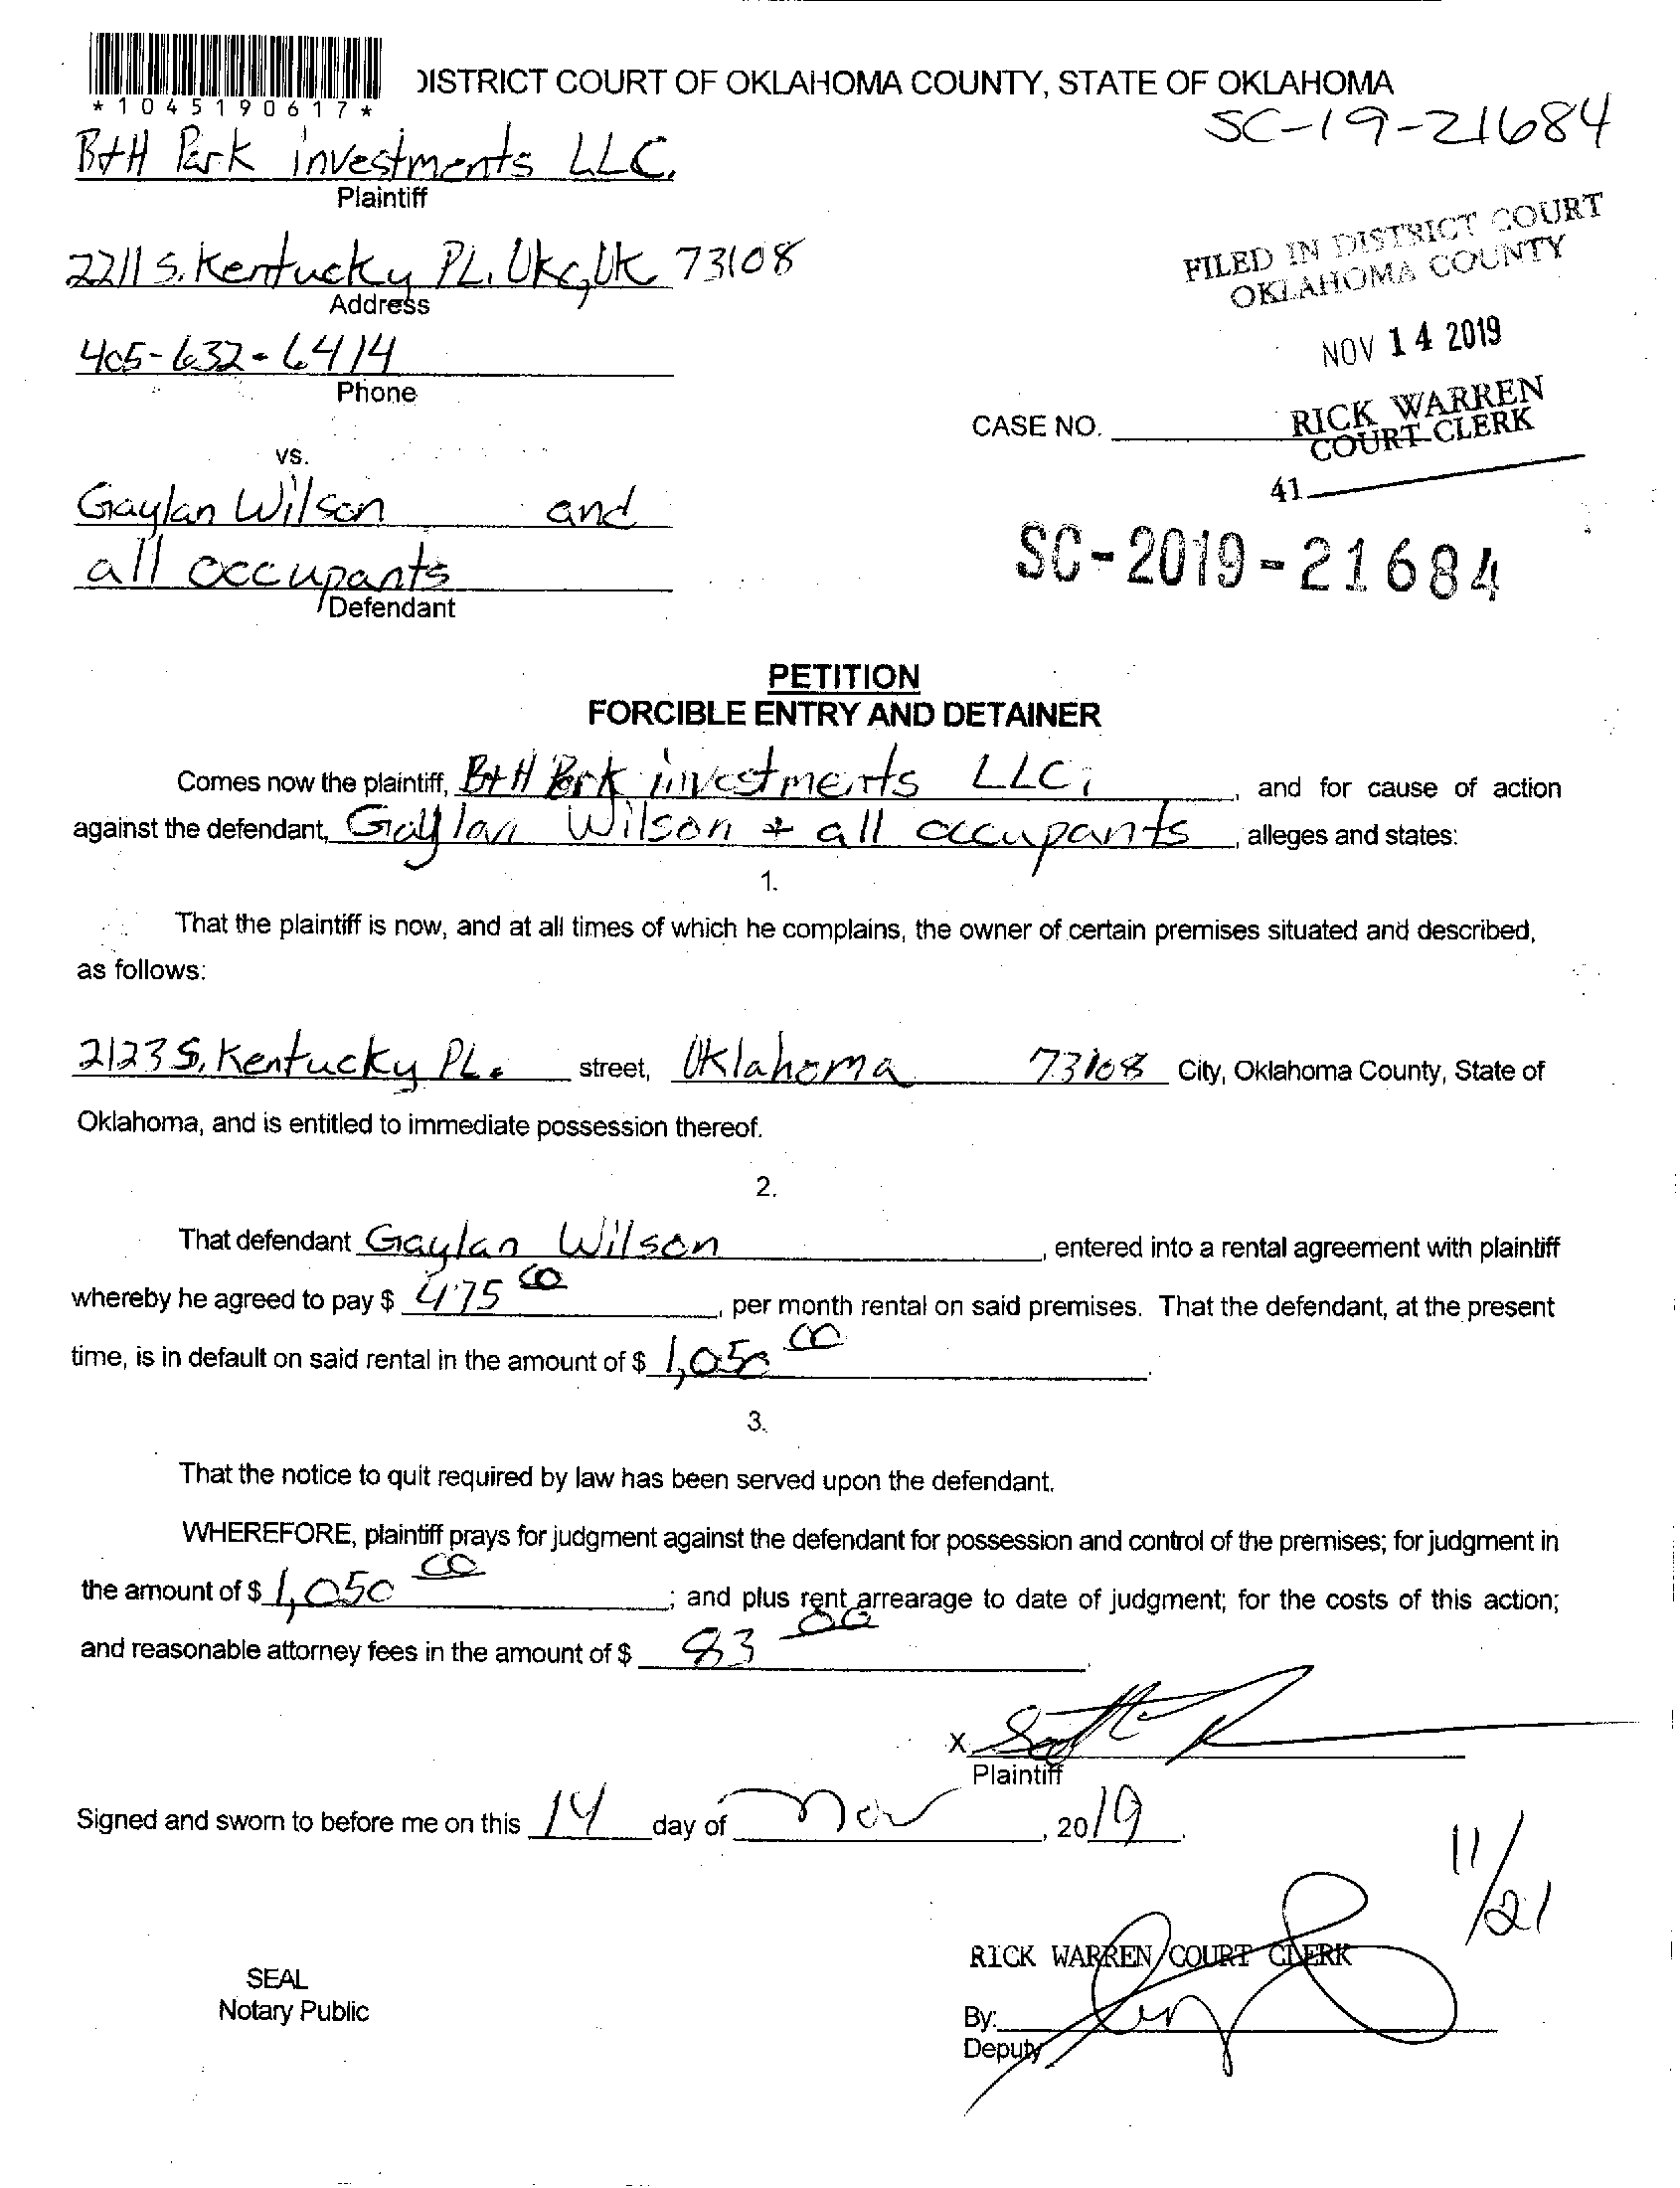 DISTRICT COURT OF OKLAHOMA COUNTY, STATE OF OKLAHOMA
*1045190617*
SC-19-21684
B+H Park investments LLC.
Plaintiff
2211 S. Kentucky PL. Okc, Ok 73108
Address
FILED IN DISTRICT COURT
OKLAHOMA COUNTY
405-632-6414
Phone
NOV 14 2019
RICK WARREN
COURT CLERK
CASE NO.
41
vs.
Gaylan Wilson and
all occupants
Defendant
SC-2019-21684
PETITION
FORCIBLE ENTRY AND DETAINER
Comes now the plaintiff, B+H Park investments LLC, and for cause of action
against the defendant, Gaylan Wilson + all occupants, alleges and states:
1.
That the plaintiff is now, and at all times of which he complains, the owner of certain premises situated and described,
as follows:
2123 S. Kentucky PL. street, Oklahoma 73108 City, Oklahoma County, State of
Oklahoma, and is entitled to immediate possession thereof.
2.
That defendant Gaylan Wilson, entered into a rental agreement with plaintiff
whereby he agreed to pay $ 475 00, per month rental on said premises. That the defendant, at the present
time, is in default on said rental in the amount of $ 1,050 00.
3.
That the notice to quit required by law has been served upon the defendant.
WHEREFORE, plaintiff prays for judgment against the defendant for possession and control of the premises; for judgment in
the amount of $ 1,050 00; and plus rent arrearage to date of judgment; for the costs of this action;
and reasonable attorney fees in the amount of $ 83 00.
X
Plaintiff
Signed and sworn to before me on this 14 day of Nov, 2019.
11/21
RICK WARREN COURT CLERK
SEAL
Notary Public
By:
Deputy